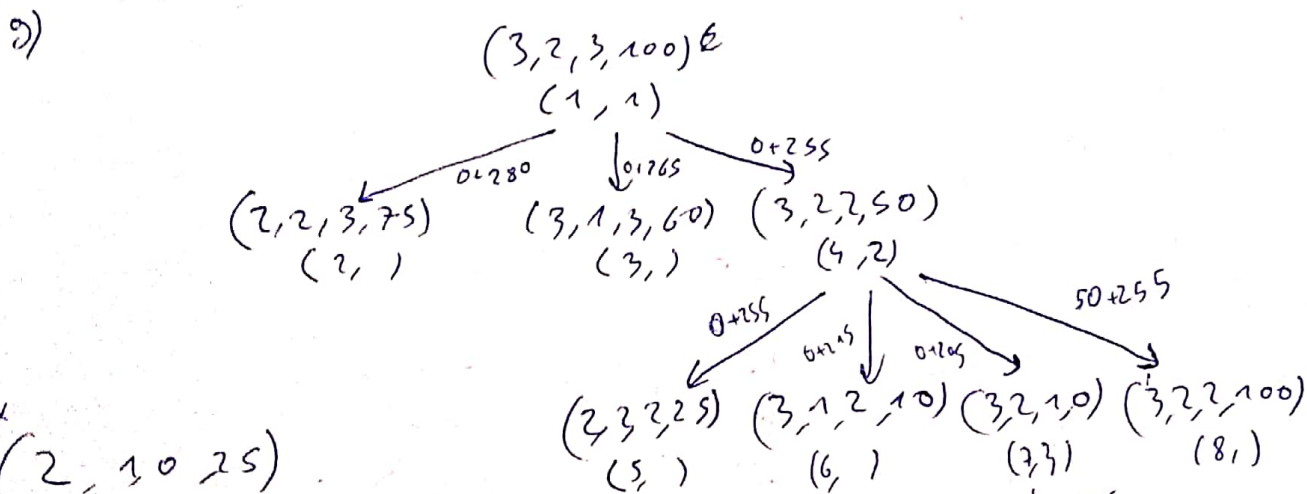 g)
(3,2,3,100)
(1,1)
0+280 0+265 0+255
(2,2,3,75) (3,1,3,60) (3,2,2,50)
(2, ) (3, ) (4,2)
0+255 0+215 0+205 50+255
(2,2,2,25) (3,1,2,10) (3,2,1,0) (3,2,2,100)
(5, ) (6, ) (7,3) (8, )
(2, 1,0,25)